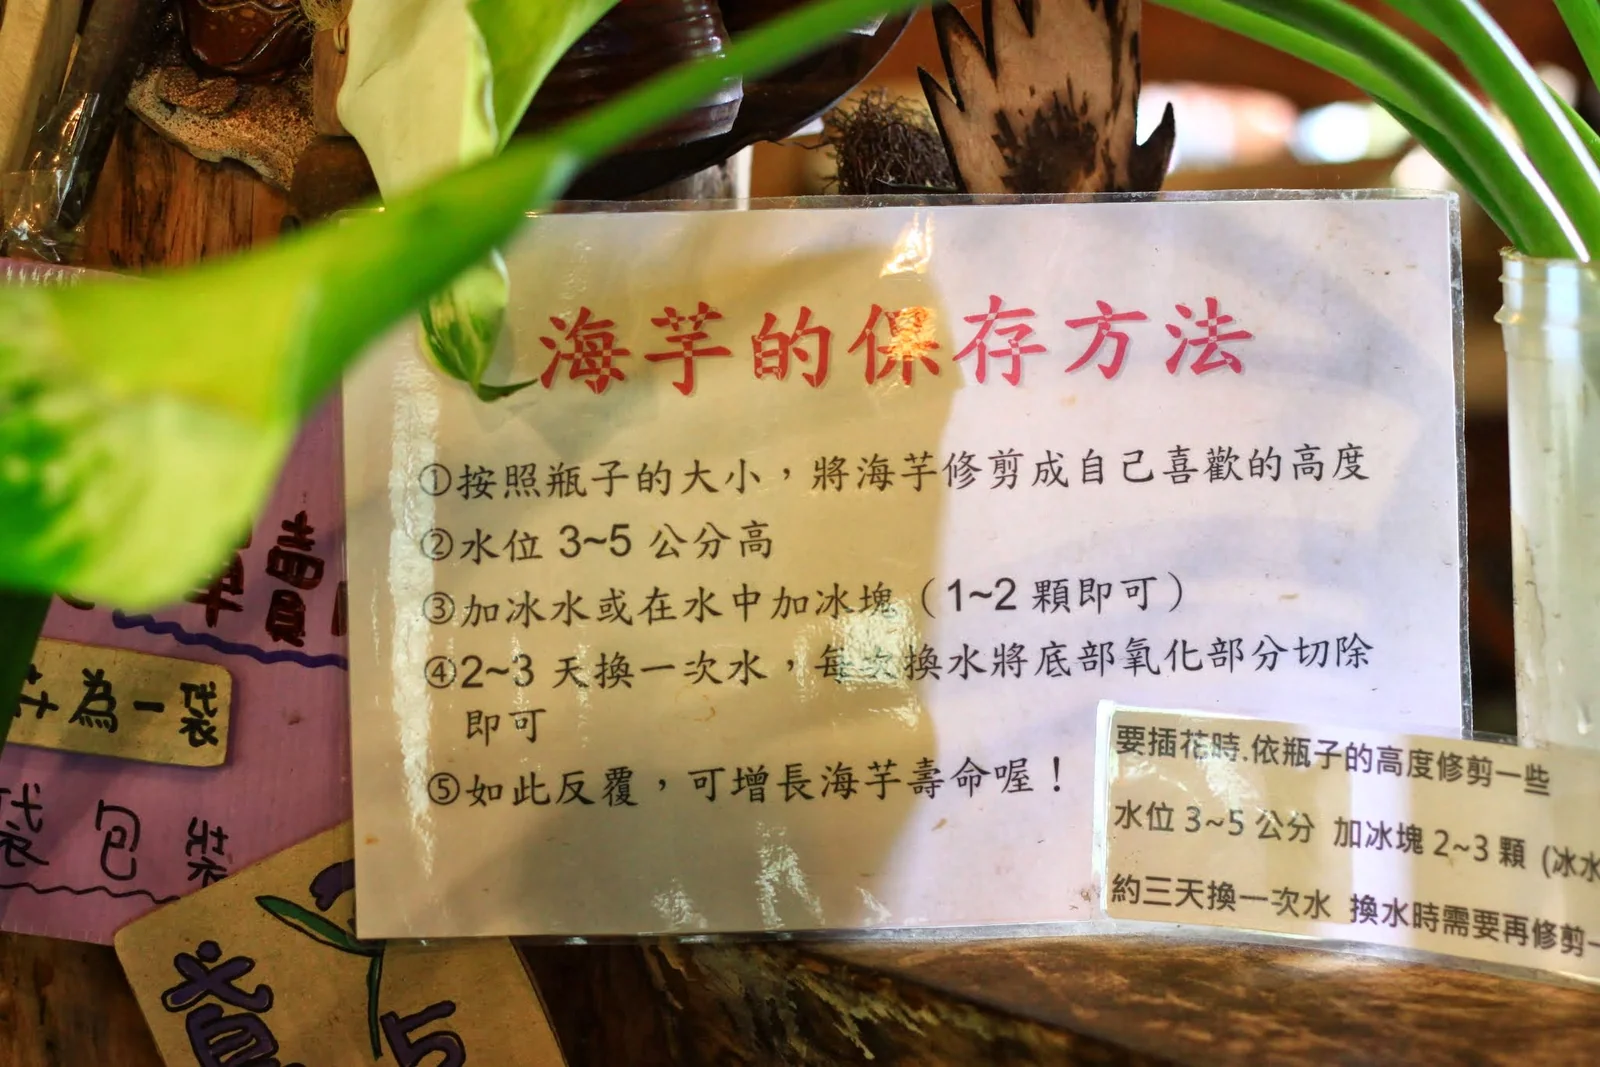 海芋的保存方法
①按照瓶子的大小，將海芋修剪成自己喜歡的高度
②水位 3~5 公分高
③加冰水或在水中加冰塊（1~2 顆即可）
④2~3 天換一次水，每次換水將底部氧化部分切除
即可
⑤如此反覆，可增長海芋壽命喔！
要插花時.依瓶子的高度修剪一些
水位 3~5 公分 加冰塊 2~3 顆 (冰水
約三天換一次水 換水時需要再修剪一
賣
為一袋
袋包裝
5